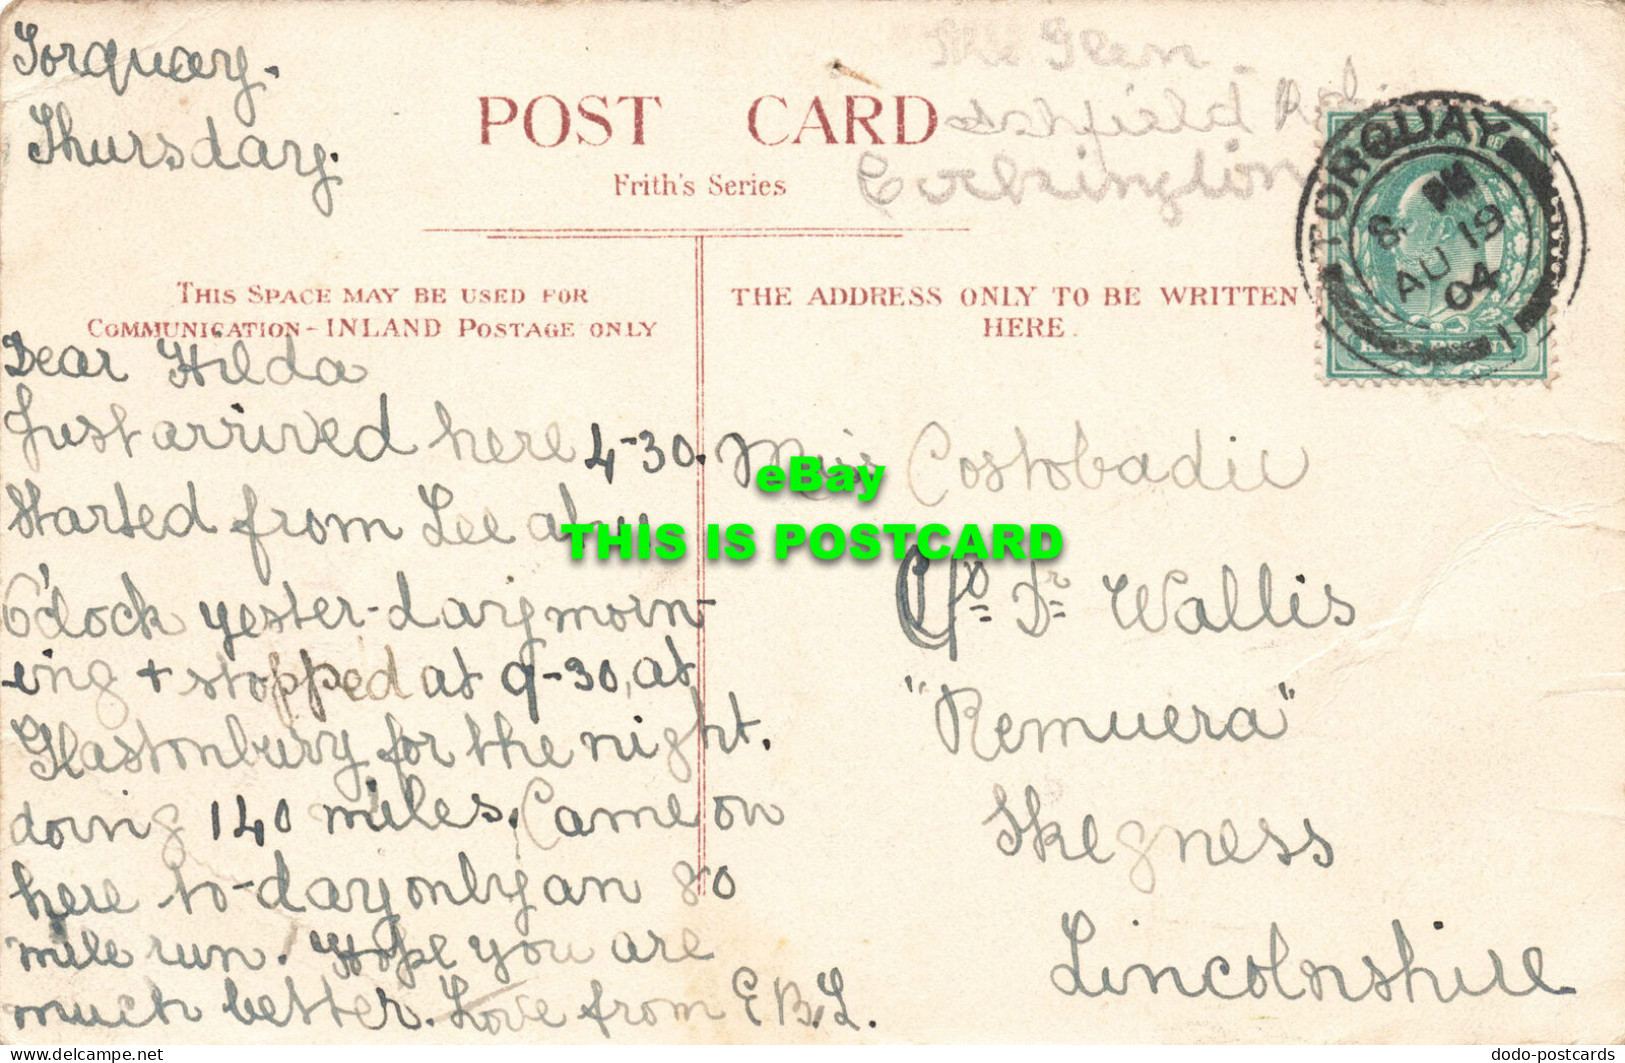 Torquay.
Thursday.
The Glen
Ashfield Rd.
POST CARD
Frith's Series
TORQUAY
8 PM
AU 19
04
1
THIS SPACE MAY BE USED FOR
COMMUNICATION - INLAND POSTAGE ONLY
THE ADDRESS ONLY TO BE WRITTEN
HERE.
Dear Hilda
Just arrived here 4-30.
Started from Lee at
O'clock yester-day morn-
ing + stopped at 9-30, at
Glastonbury for the night.
doing 140 miles. Came on
here to-day only an 80
mile run. Hope you are
much better. Love from E.B.L.
Miss Costobadie
C/o Dr Wallis
"Remuera"
Skegness
Lincolnshire
eBay
THIS IS POSTCARD
Visit delcampe.net
dodo-postcards